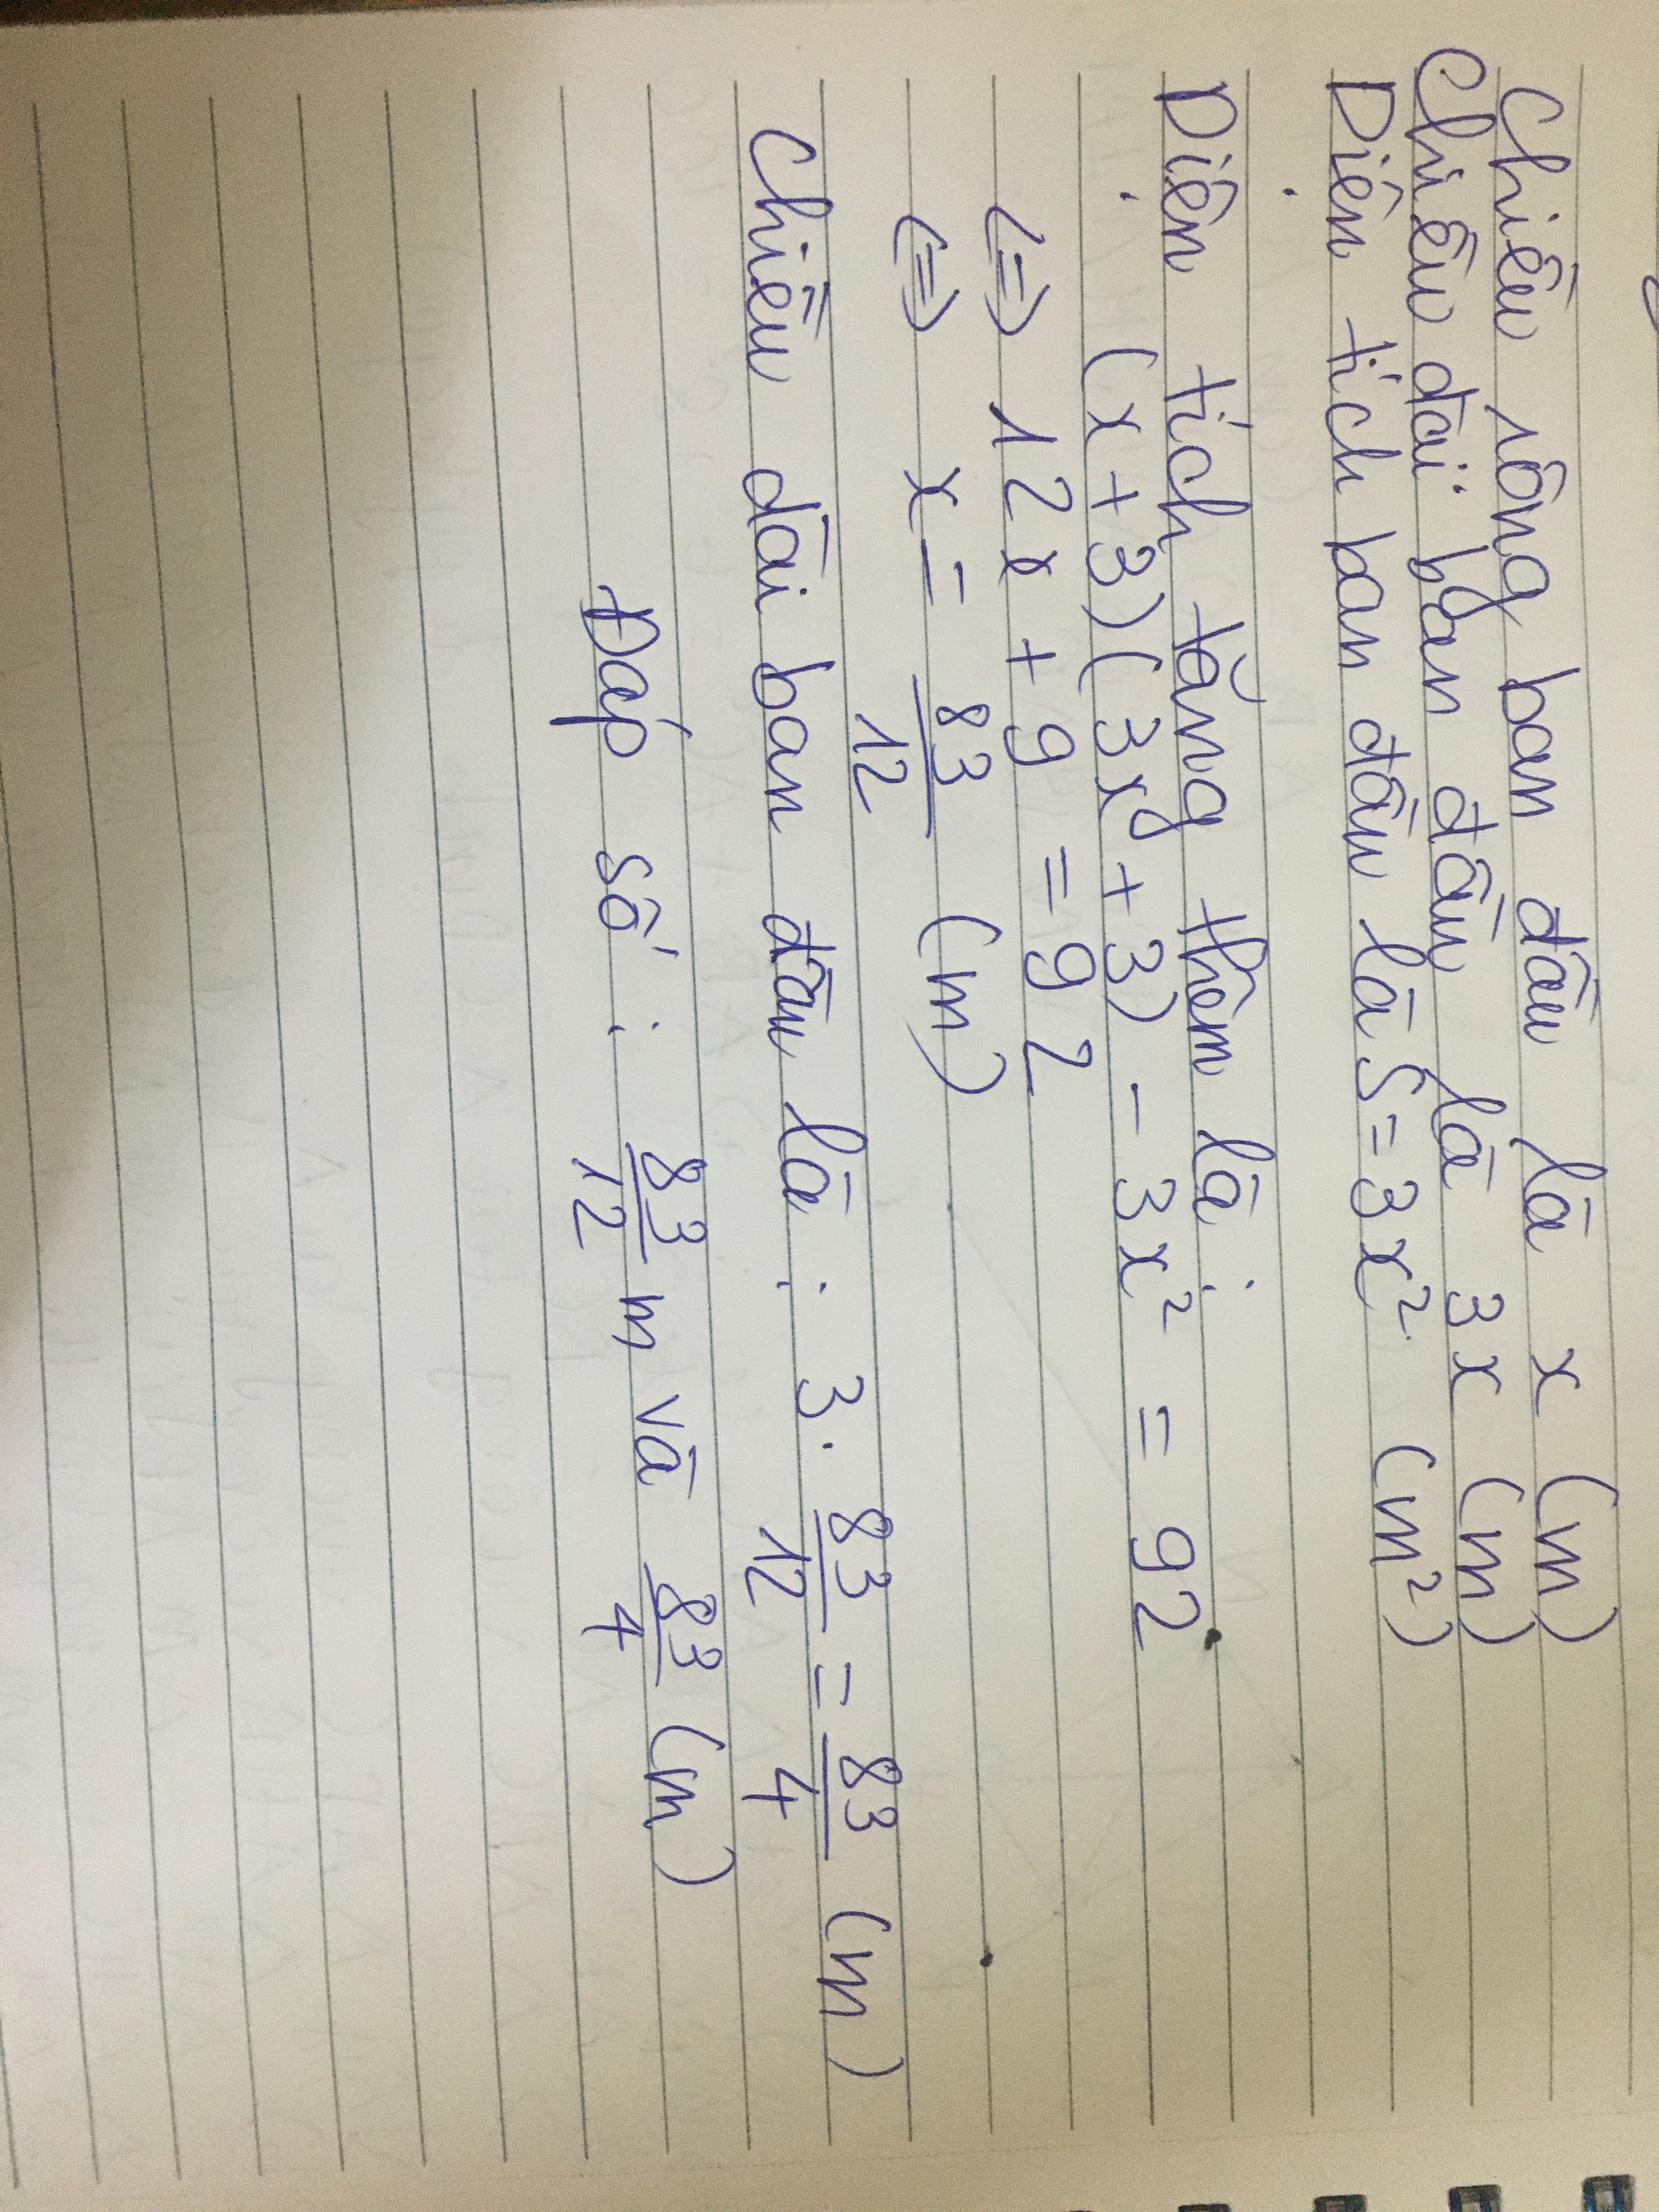 Chiều rộng ban đầu là x (m)
Chiều dài ban đầu là 3x (m)
Diện tích ban đầu là S = 3x² (m²)
Diện tích tăng thêm là :
(x + 3)(3x + 3) - 3x² = 92
<=> 12x + 9 = 92
<=> x = 83/12 (m)
Chiều dài ban đầu là : 3 . 83/12 = 83/4 (m)
Đáp số : 83/12 m và 83/4 (m)